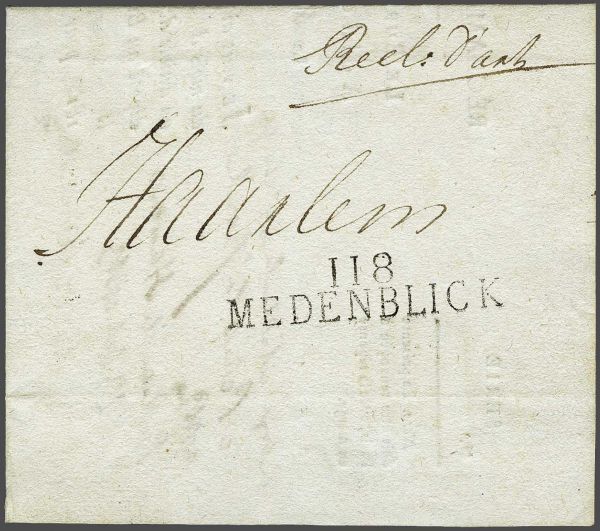 Reel: d'art
Haarlem
118
MEDENBLICK